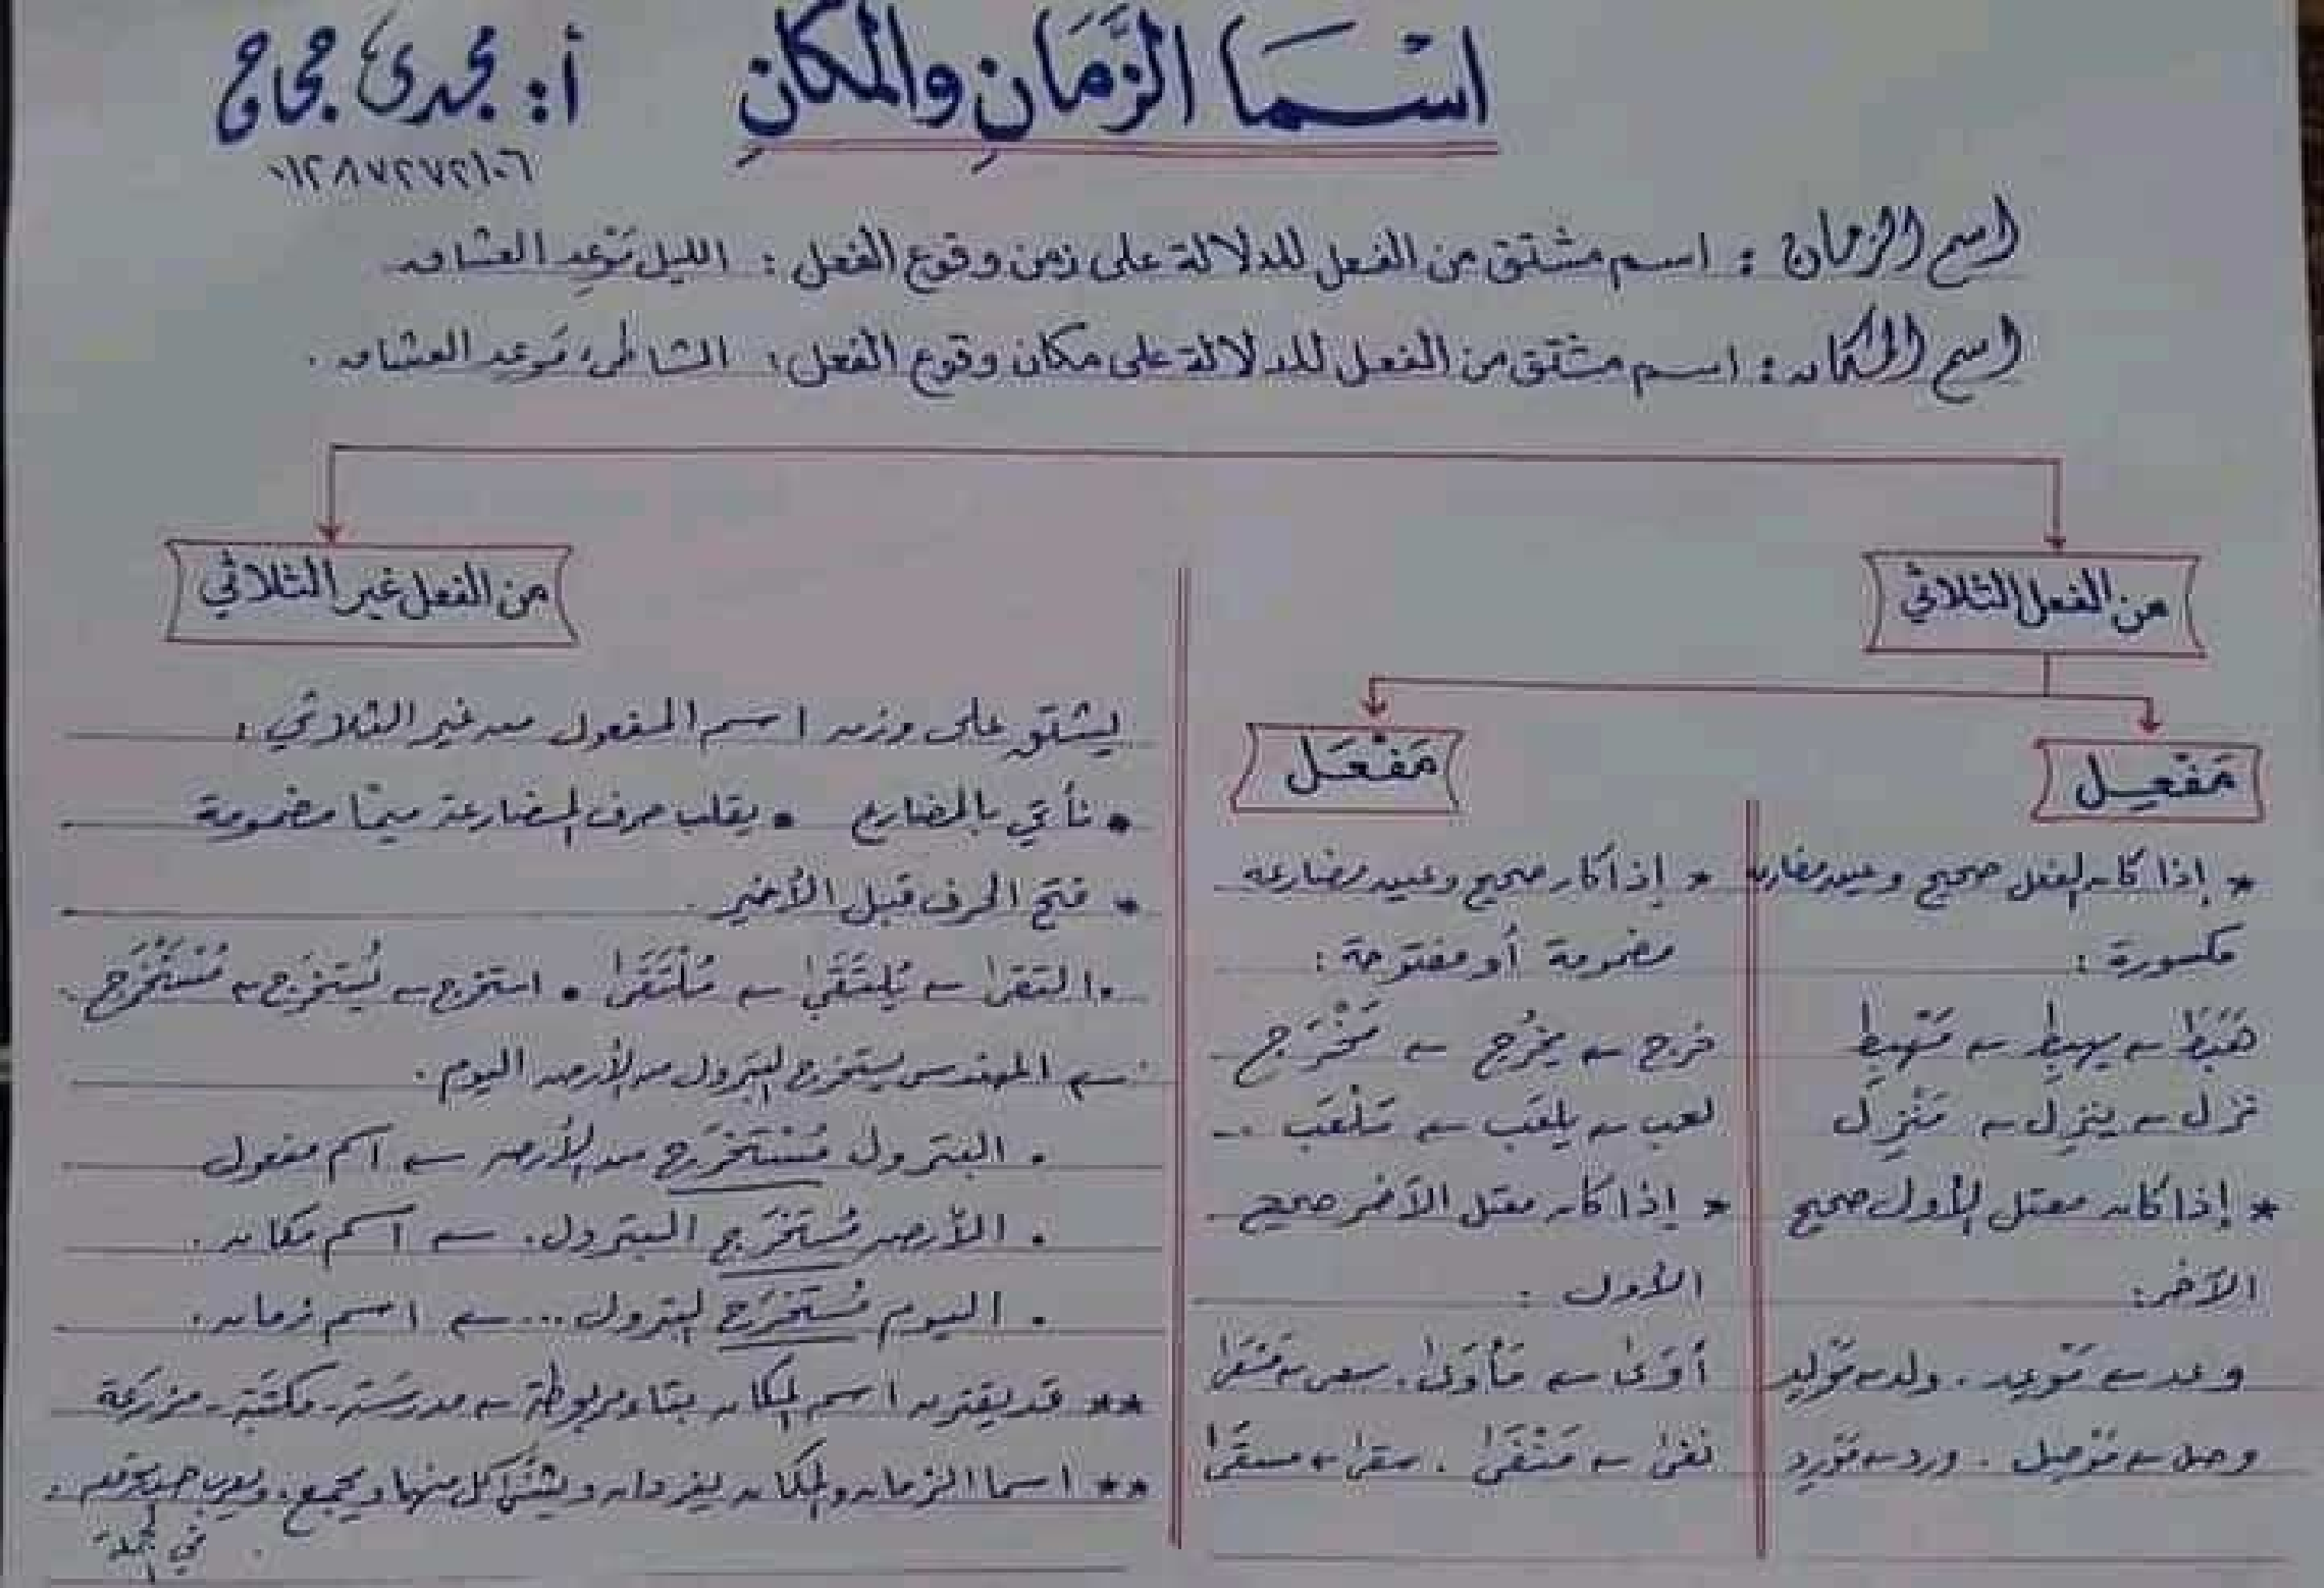 اسْمَا الزَّمَانِ والمكانِ
أ: مجدى حجاج
٠١٢٨٧٢٧٢١٠٦
اسم الزمان : اسم مشتق من الفعل للدلالة على زمن وقوع الفعل : الليل مَوْعِد العشاق
اسم المكان : اسم مشتق من الفعل للدلالة على مكان وقوع الفعل : الشاطئ مَوعِد العشاق .
من الفعل الثلاثي
مَفْعِـل
* إذا كان الفعل صحيح وعين مضارعه
مكسورة :
هَبَطَ ← يهبِط ← مَهبِط
نزل ← ينزِل ← مَنْزِل
* إذا كان معتل الأول صحيح
الآخر:
وعد ← مَوْعِد . ولد ← مَوْلِد
وصل ← مَوْصِل . ورد ← مَوْرِد
مَفْعَـل
* إذا كان صحيح وعين مضارعه
مضمومة أو مفتوحة :
خرج ← يخرُج ← مَخْرَج
لعب ← يلعَب ← مَلْعَب .
* إذا كان معتل الآخر صحيح
الأول :
أوَى ← مَأْوَى . سعى ← مَسْعَى
نفى ← مَنْفَى . سقى ← مسقَى
من الفعل غير الثلاثي
يشتق على وزن اسم المفعول من غير الثلاثي :
• نأتي بالمضارع • يقلب حرف المضارعة ميمًا مضمومة
• فتح الحرف قبل الأخير .
• التقى ← يُلتَقَى ← مُلْتَقَى • استخرج ← يُستخرَج ← مُسْتَخْرَج .
← المهندس يستخرج البترول من الأرض اليوم .
. البترول مُسْتَخرَج من الأرض ← اسم مفعول
. الأرض مُستَخْرَج البترول . ← اسم مكان .
. اليوم مُستَخرَج البترول ... ← اسم زمان .
** قد يقترن اسم المكان بتاء مربوطة ← مدرسَة - مكتَبَة - مزرَعة
** اسما الزمان والمكان يفردان ويثنى كل منها ويجمع . ويعرب حسب موقعه .
في الجملة